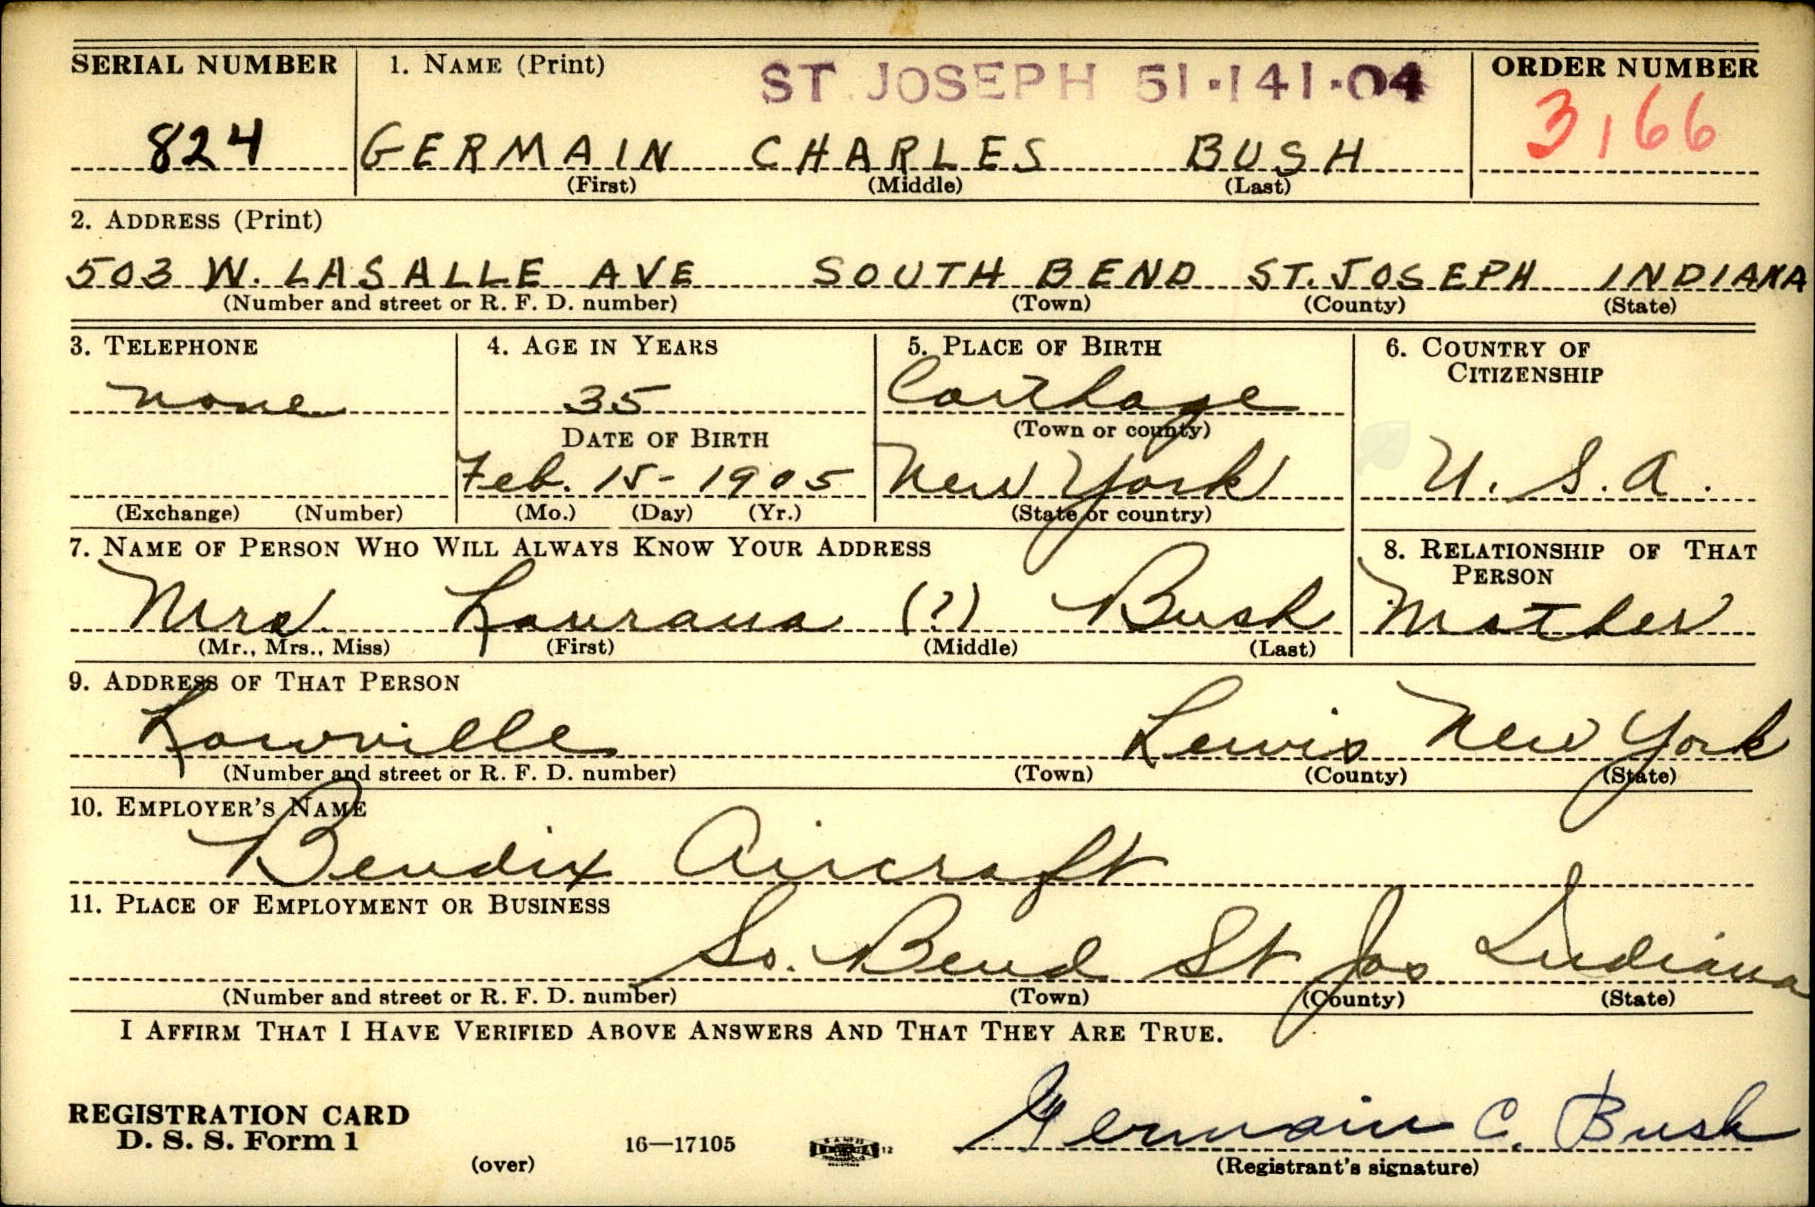 SERIAL NUMBER 1. NAME (Print) ST JOSEPH 51-141-04 ORDER NUMBER
824 GERMAIN CHARLES BUSH 3166
(First) (Middle) (Last)
2. ADDRESS (Print)
503 W. LASALLE AVE SOUTH BEND ST. JOSEPH INDIANA
(Number and street or R. F. D. number) (Town) (County) (State)
3. TELEPHONE 4. AGE IN YEARS 5. PLACE OF BIRTH 6. COUNTRY OF
CITIZENSHIP
none 35 Carthage
DATE OF BIRTH (Town or county)
Feb. 15-1905 New York U. S. A.
(Exchange) (Number) (Mo.) (Day) (Yr.) (State or country)
7. NAME OF PERSON WHO WILL ALWAYS KNOW YOUR ADDRESS 8. RELATIONSHIP OF THAT
PERSON
Mrs. Laurana (?) Bush Mother
(Mr., Mrs., Miss) (First) (Middle) (Last)
9. ADDRESS OF THAT PERSON
Lowville Lewis New York
(Number and street or R. F. D. number) (Town) (County) (State)
10. EMPLOYER'S NAME
Bendix Aircraft
11. PLACE OF EMPLOYMENT OR BUSINESS
So. Bend St Jos Indiana
(Number and street or R. F. D. number) (Town) (County) (State)
I AFFIRM THAT I HAVE VERIFIED ABOVE ANSWERS AND THAT THEY ARE TRUE.
REGISTRATION CARD
D. S. S. Form 1 16—17105 12 Germain C. Bush
(over) (Registrant's signature)